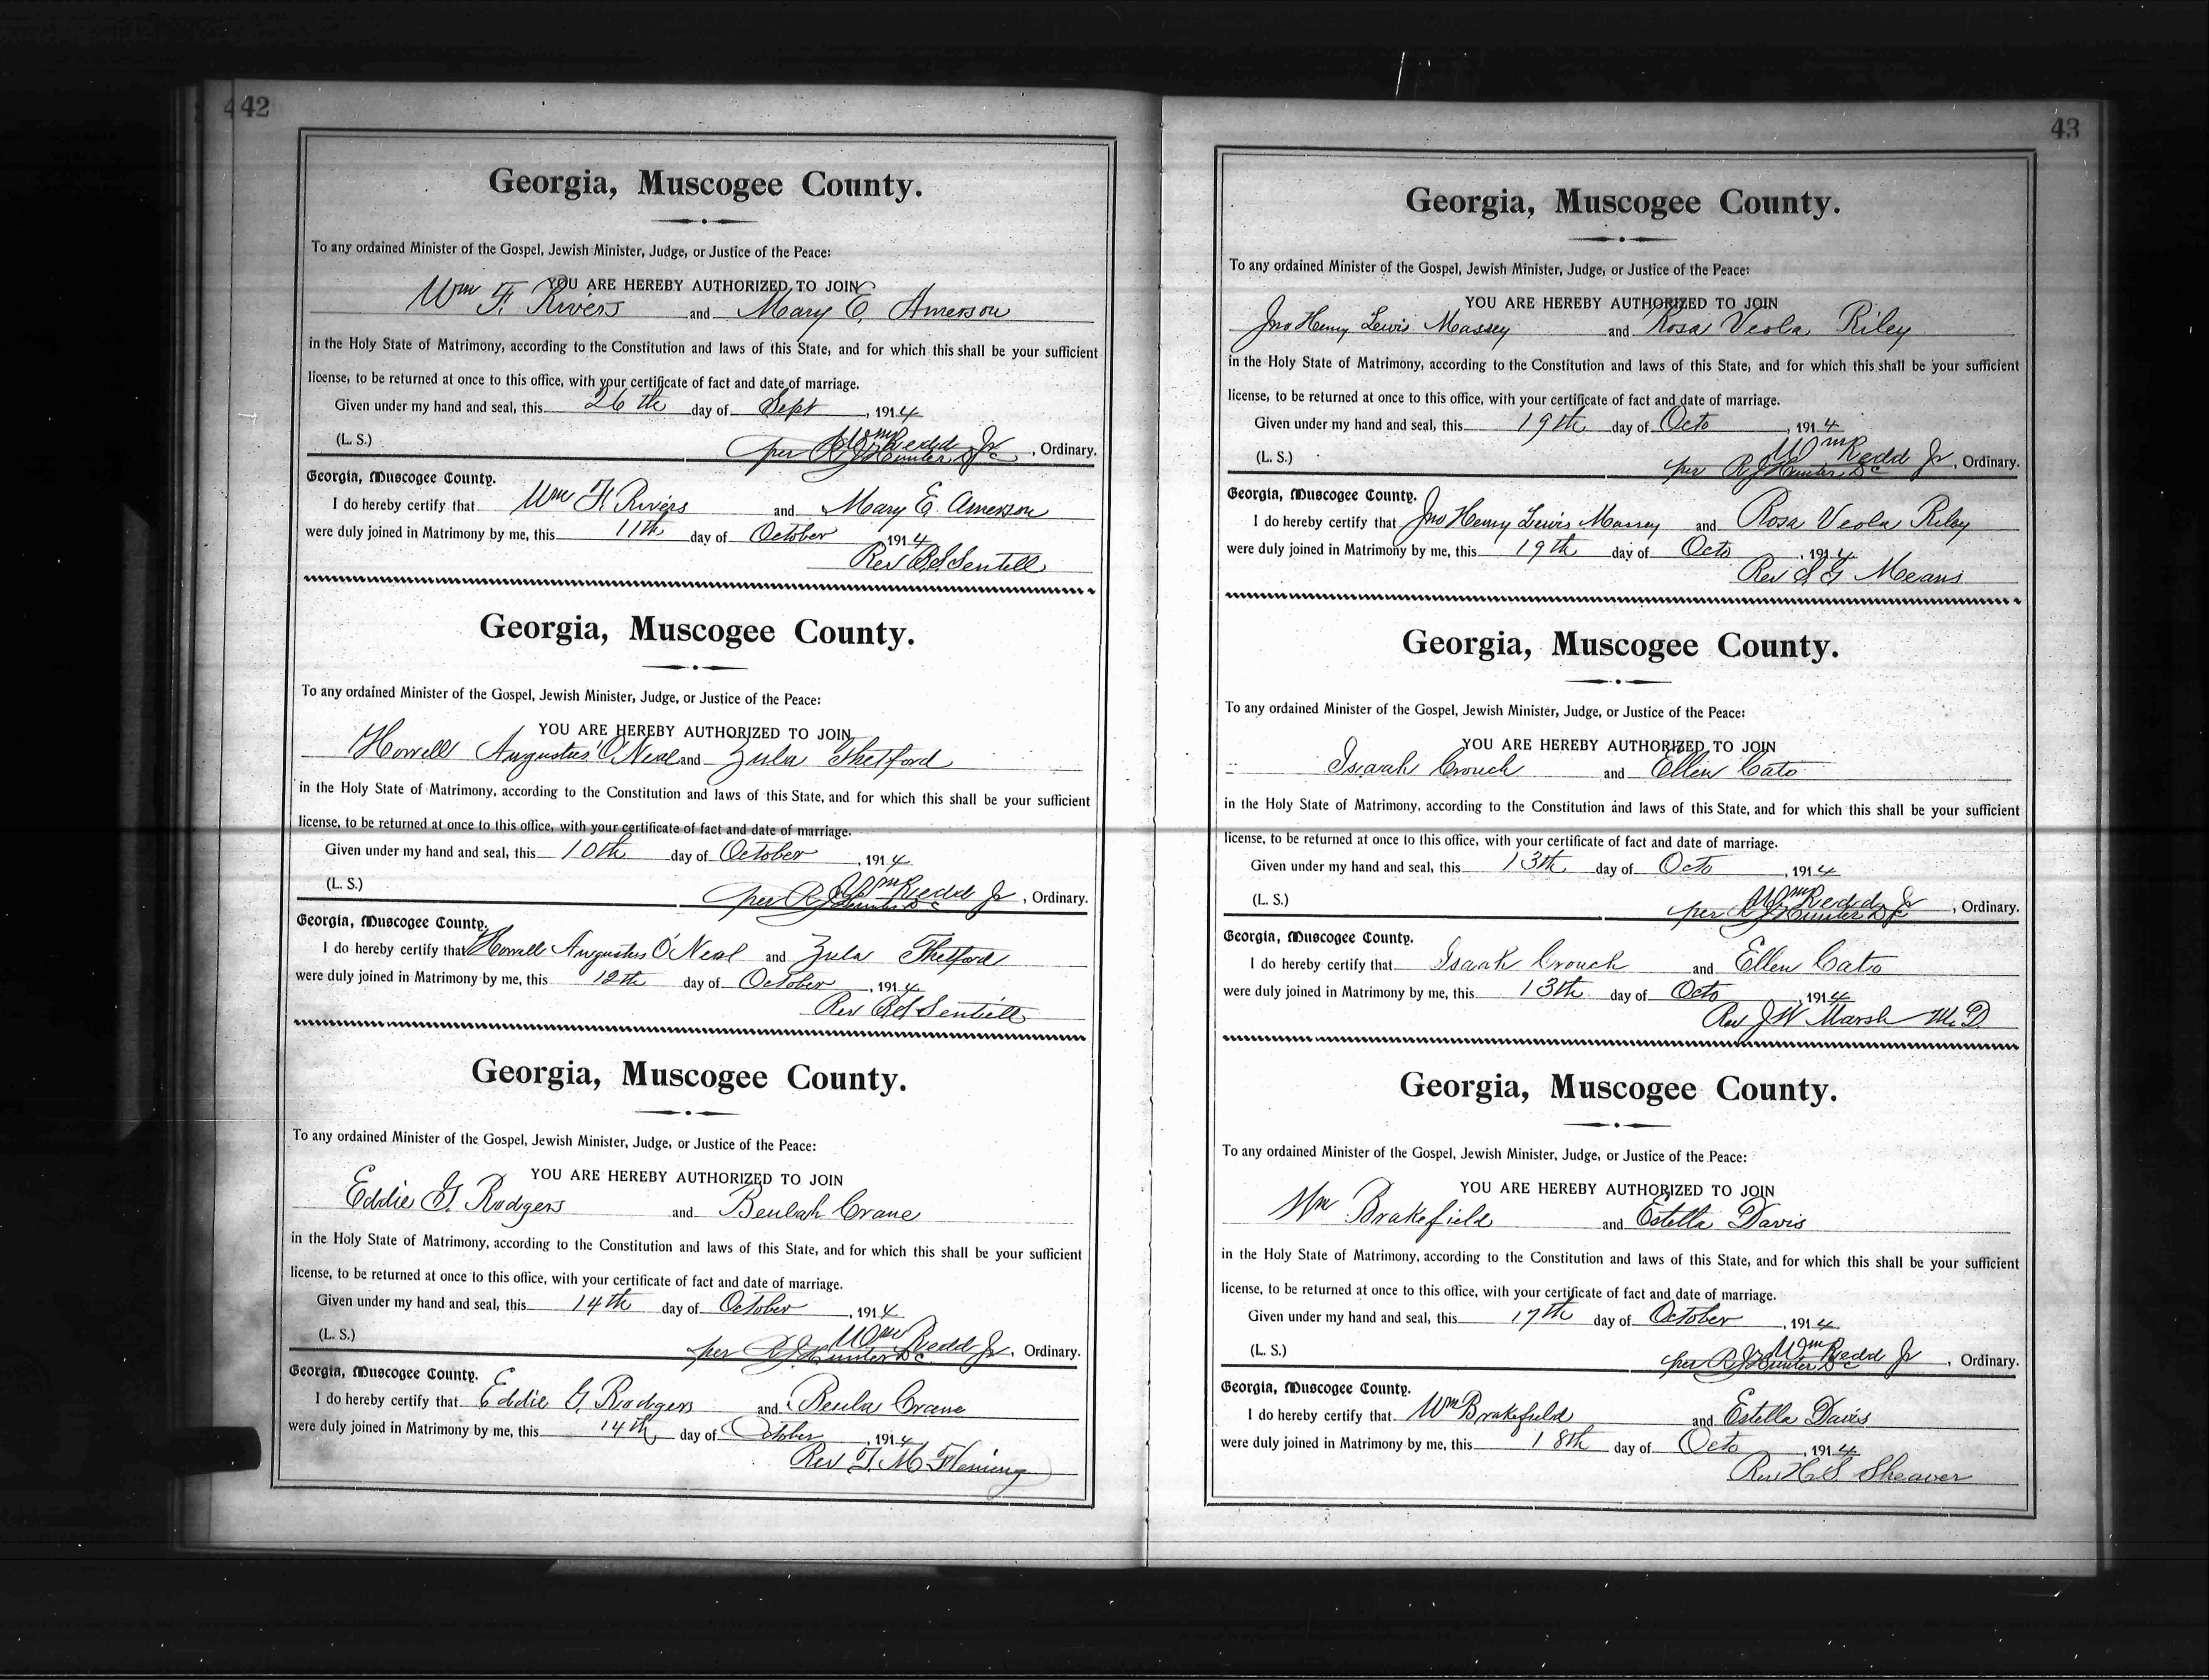 42
Georgia, Muscogee County.
To any ordained Minister of the Gospel, Jewish Minister, Judge, or Justice of the Peace:
YOU ARE HEREBY AUTHORIZED TO JOIN
Wm F. Rivers and Mary E. Amerson
in the Holy State of Matrimony, according to the Constitution and laws of this State, and for which this shall be your sufficient
license, to be returned at once to this office, with your certificate of fact and date of marriage.
Given under my hand and seal, this 26th day of Sept, 1914
(L. S.) Wm Redd Jr, Ordinary.
per R J Hunter DC
Georgia, Muscogee County.
I do hereby certify that Wm F. Rivers and Mary E. Amerson
were duly joined in Matrimony by me, this 11th day of October, 1914
Rev B.S. Sentell
Georgia, Muscogee County.
To any ordained Minister of the Gospel, Jewish Minister, Judge, or Justice of the Peace:
YOU ARE HEREBY AUTHORIZED TO JOIN
Horrell Augustus O'Neal and Zula Thetford
in the Holy State of Matrimony, according to the Constitution and laws of this State, and for which this shall be your sufficient
license, to be returned at once to this office, with your certificate of fact and date of marriage.
Given under my hand and seal, this 10th day of October, 1914
(L. S.) Wm Redd Jr, Ordinary.
per R J Hunter DC
Georgia, Muscogee County.
I do hereby certify that Horrell Augustus O'Neal and Zula Thetford
were duly joined in Matrimony by me, this 12th day of October, 1914
Rev B S Sentell
Georgia, Muscogee County.
To any ordained Minister of the Gospel, Jewish Minister, Judge, or Justice of the Peace:
YOU ARE HEREBY AUTHORIZED TO JOIN
Eddie G. Rodgers and Beulah Crane
in the Holy State of Matrimony, according to the Constitution and laws of this State, and for which this shall be your sufficient
license, to be returned at once to this office, with your certificate of fact and date of marriage.
Given under my hand and seal, this 14th day of October, 1914
(L. S.) Wm Redd Jr, Ordinary.
per R J Hunter DC
Georgia, Muscogee County.
I do hereby certify that Eddie G. Rodgers and Beula Crane
were duly joined in Matrimony by me, this 14th day of October, 1914
Rev T. M. Fleming
43
Georgia, Muscogee County.
To any ordained Minister of the Gospel, Jewish Minister, Judge, or Justice of the Peace:
YOU ARE HEREBY AUTHORIZED TO JOIN
Jno Henry Lewis Massey and Rosa Veola Riley
in the Holy State of Matrimony, according to the Constitution and laws of this State, and for which this shall be your sufficient
license, to be returned at once to this office, with your certificate of fact and date of marriage.
Given under my hand and seal, this 19th day of Octo, 1914
(L. S.) Wm Redd Jr, Ordinary.
per R J Hunter DC
Georgia, Muscogee County.
I do hereby certify that Jno Henry Lewis Massey and Rosa Veola Riley
were duly joined in Matrimony by me, this 19th day of Octo, 1914
Rev S. G. Means
Georgia, Muscogee County.
To any ordained Minister of the Gospel, Jewish Minister, Judge, or Justice of the Peace:
YOU ARE HEREBY AUTHORIZED TO JOIN
Isaah Crouch and Ellen Cato
in the Holy State of Matrimony, according to the Constitution and laws of this State, and for which this shall be your sufficient
license, to be returned at once to this office, with your certificate of fact and date of marriage.
Given under my hand and seal, this 13th day of Octo, 1914
(L. S.) Wm Redd Jr, Ordinary.
per R J Hunter DC
Georgia, Muscogee County.
I do hereby certify that Isaah Crouch and Ellen Cato
were duly joined in Matrimony by me, this 13th day of Octo, 1914
Rev J W Marsh M.D.
Georgia, Muscogee County.
To any ordained Minister of the Gospel, Jewish Minister, Judge, or Justice of the Peace:
YOU ARE HEREBY AUTHORIZED TO JOIN
Wm Brakefield and Estella Davis
in the Holy State of Matrimony, according to the Constitution and laws of this State, and for which this shall be your sufficient
license, to be returned at once to this office, with your certificate of fact and date of marriage.
Given under my hand and seal, this 17th day of October, 1914
(L. S.) Wm Redd Jr, Ordinary.
per R J Hunter DC
Georgia, Muscogee County.
I do hereby certify that Wm Brakefield and Estella Davis
were duly joined in Matrimony by me, this 18th day of Octo, 1914
Rev H. S. Sheaver